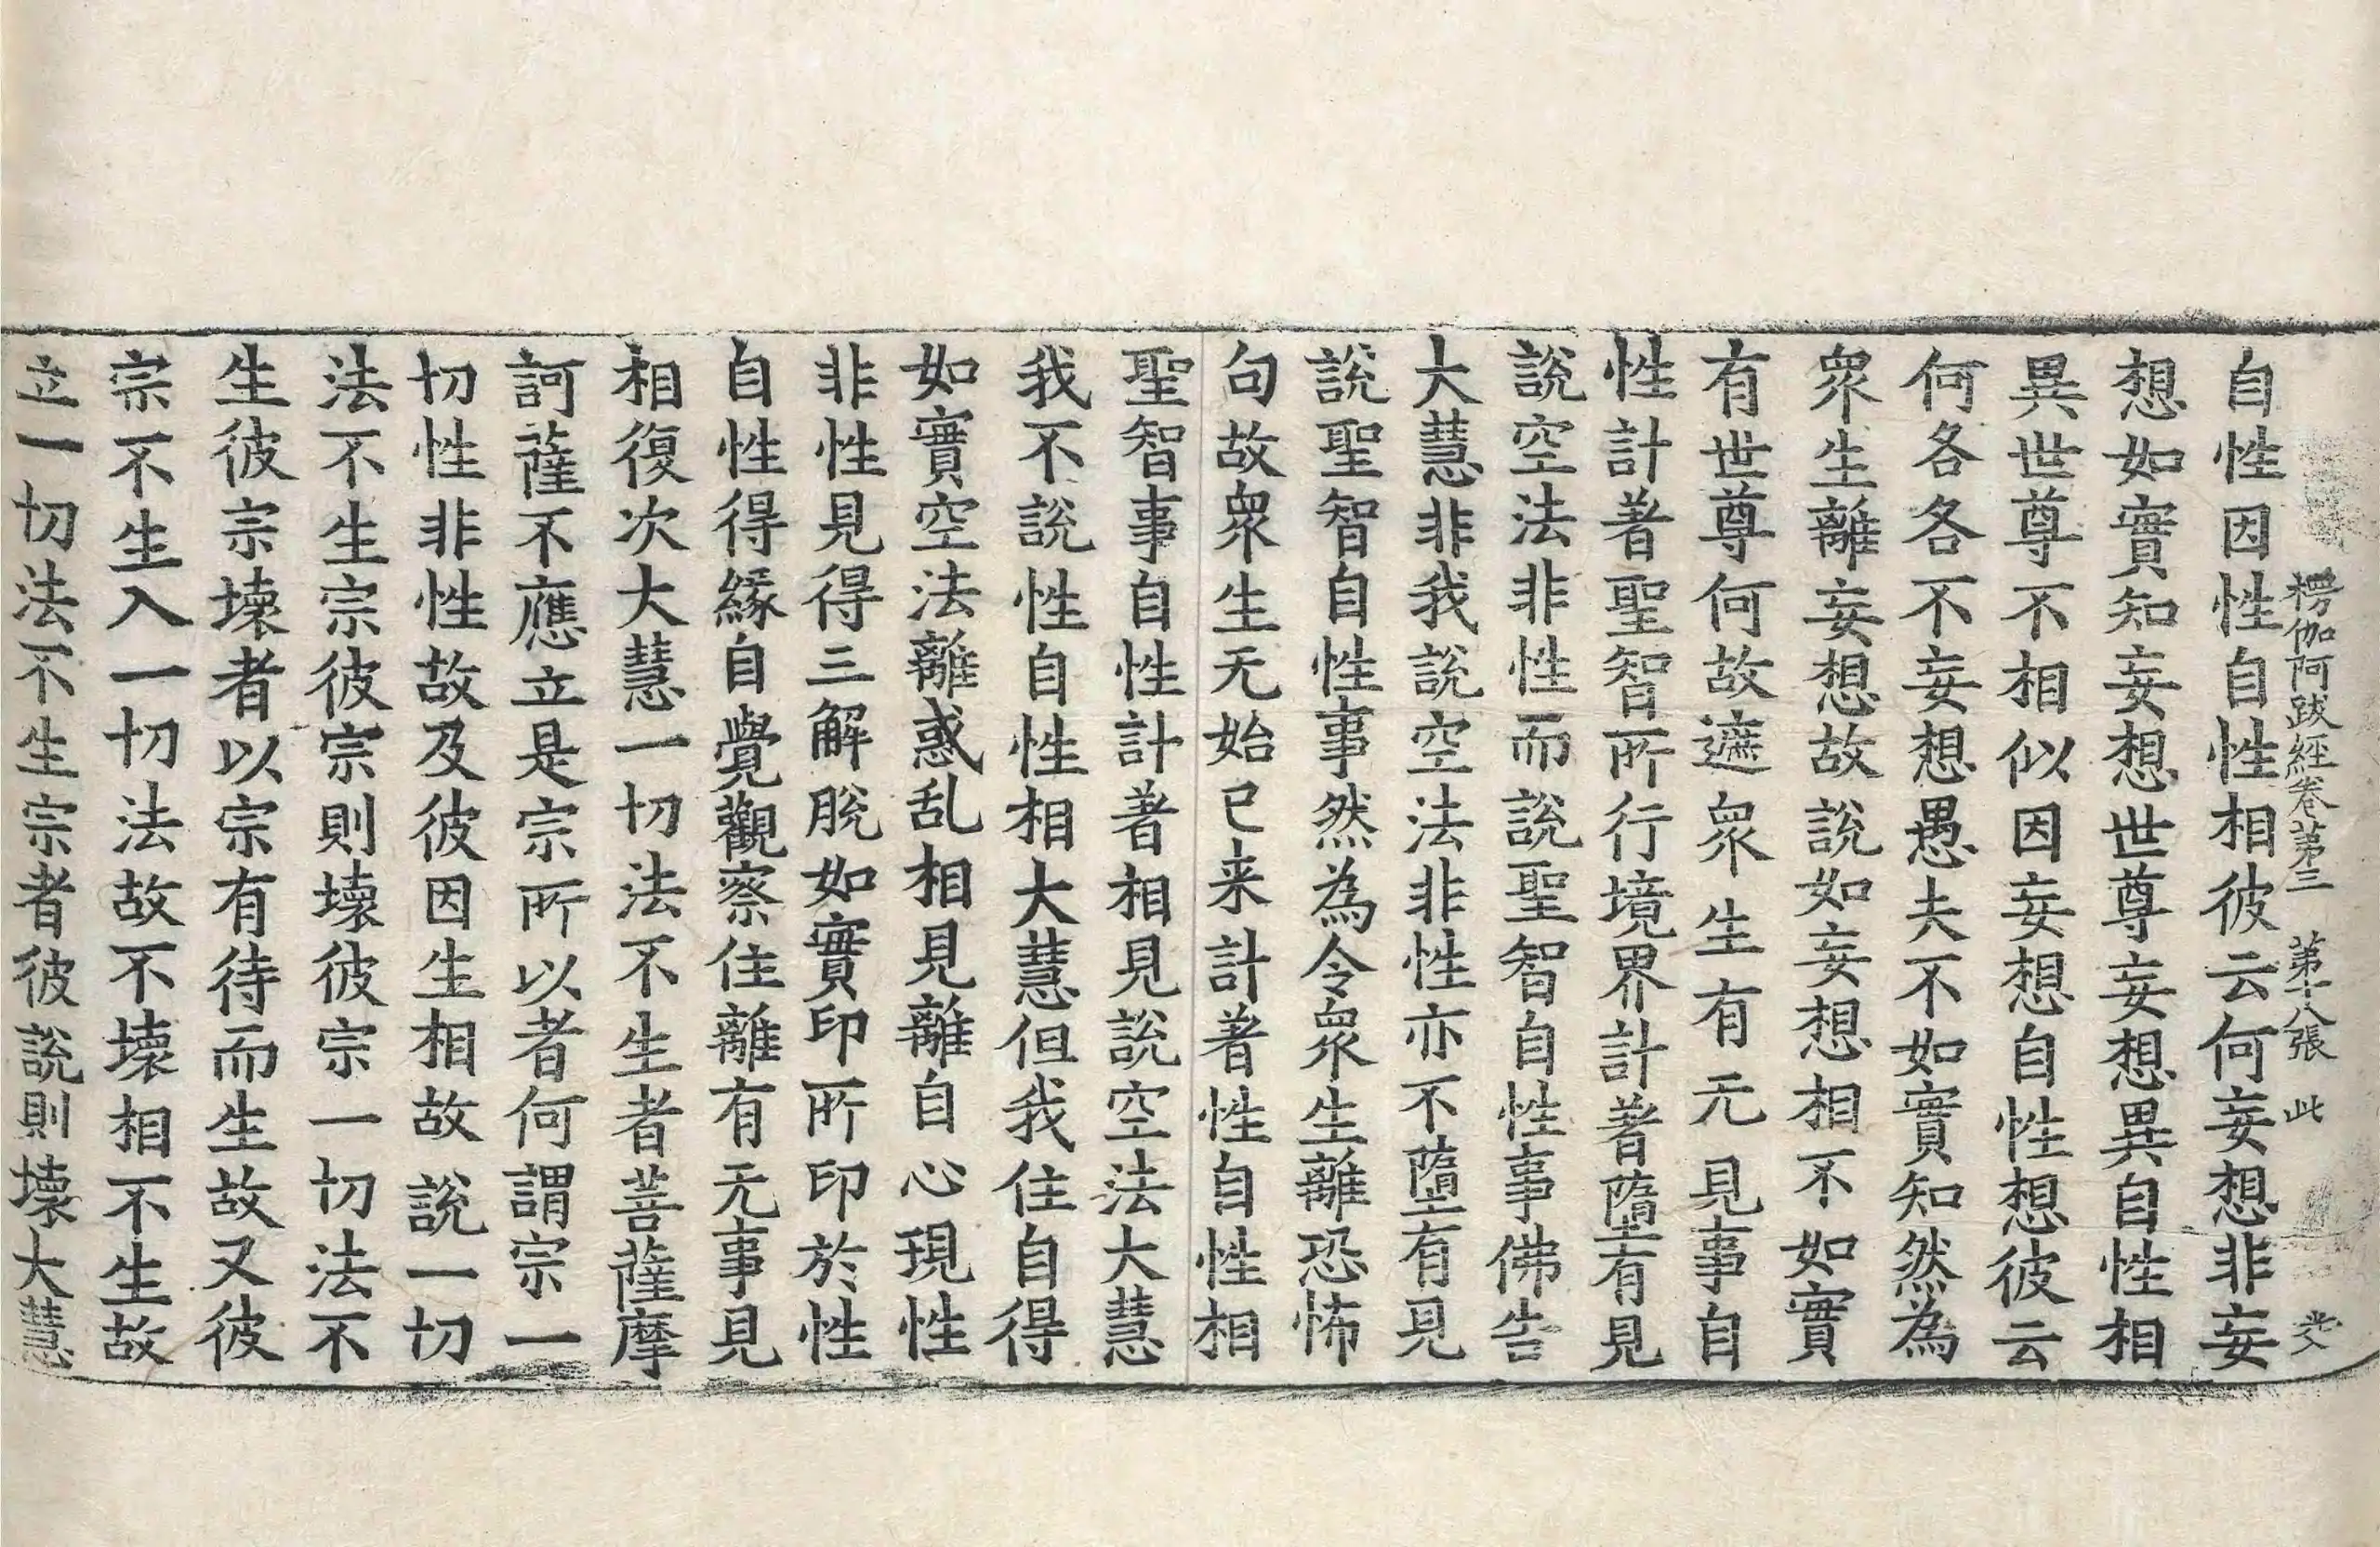 楞伽阿跋經卷第三 第十八張 此
自性因性自性相彼云何妄想非妄
想如實知妄想世尊妄想異自性相
異世尊不相似因妄想自性想彼云
何各各不妄想愚夫不如實知然為
衆生離妄想故說如妄想相不如實
有世尊何故遮衆生有无見事自
性計著聖智所行境界計著墮有見
說空法非性而說聖智自性事佛告
大慧非我說空法非性亦不墮有見
說聖智自性事然為令衆生離恐怖
句故衆生无始已来計著性自性相
聖智事自性計著相見說空法大慧
我不說性自性相大慧但我住自得
如實空法離惑乱相見離自心現性
非性見得三解脫如實印所印於性
自性得緣自覺觀察住離有无事見
相復次大慧一切法不生者菩薩摩
訶薩不應立是宗所以者何謂宗一
切性非性故及彼因生相故說一切
法不生宗彼宗則壞彼宗一切法不
生彼宗壞者以宗有待而生故又彼
宗不生入一切法故不壞相不生故
立一切法不生宗者彼說則壞大慧